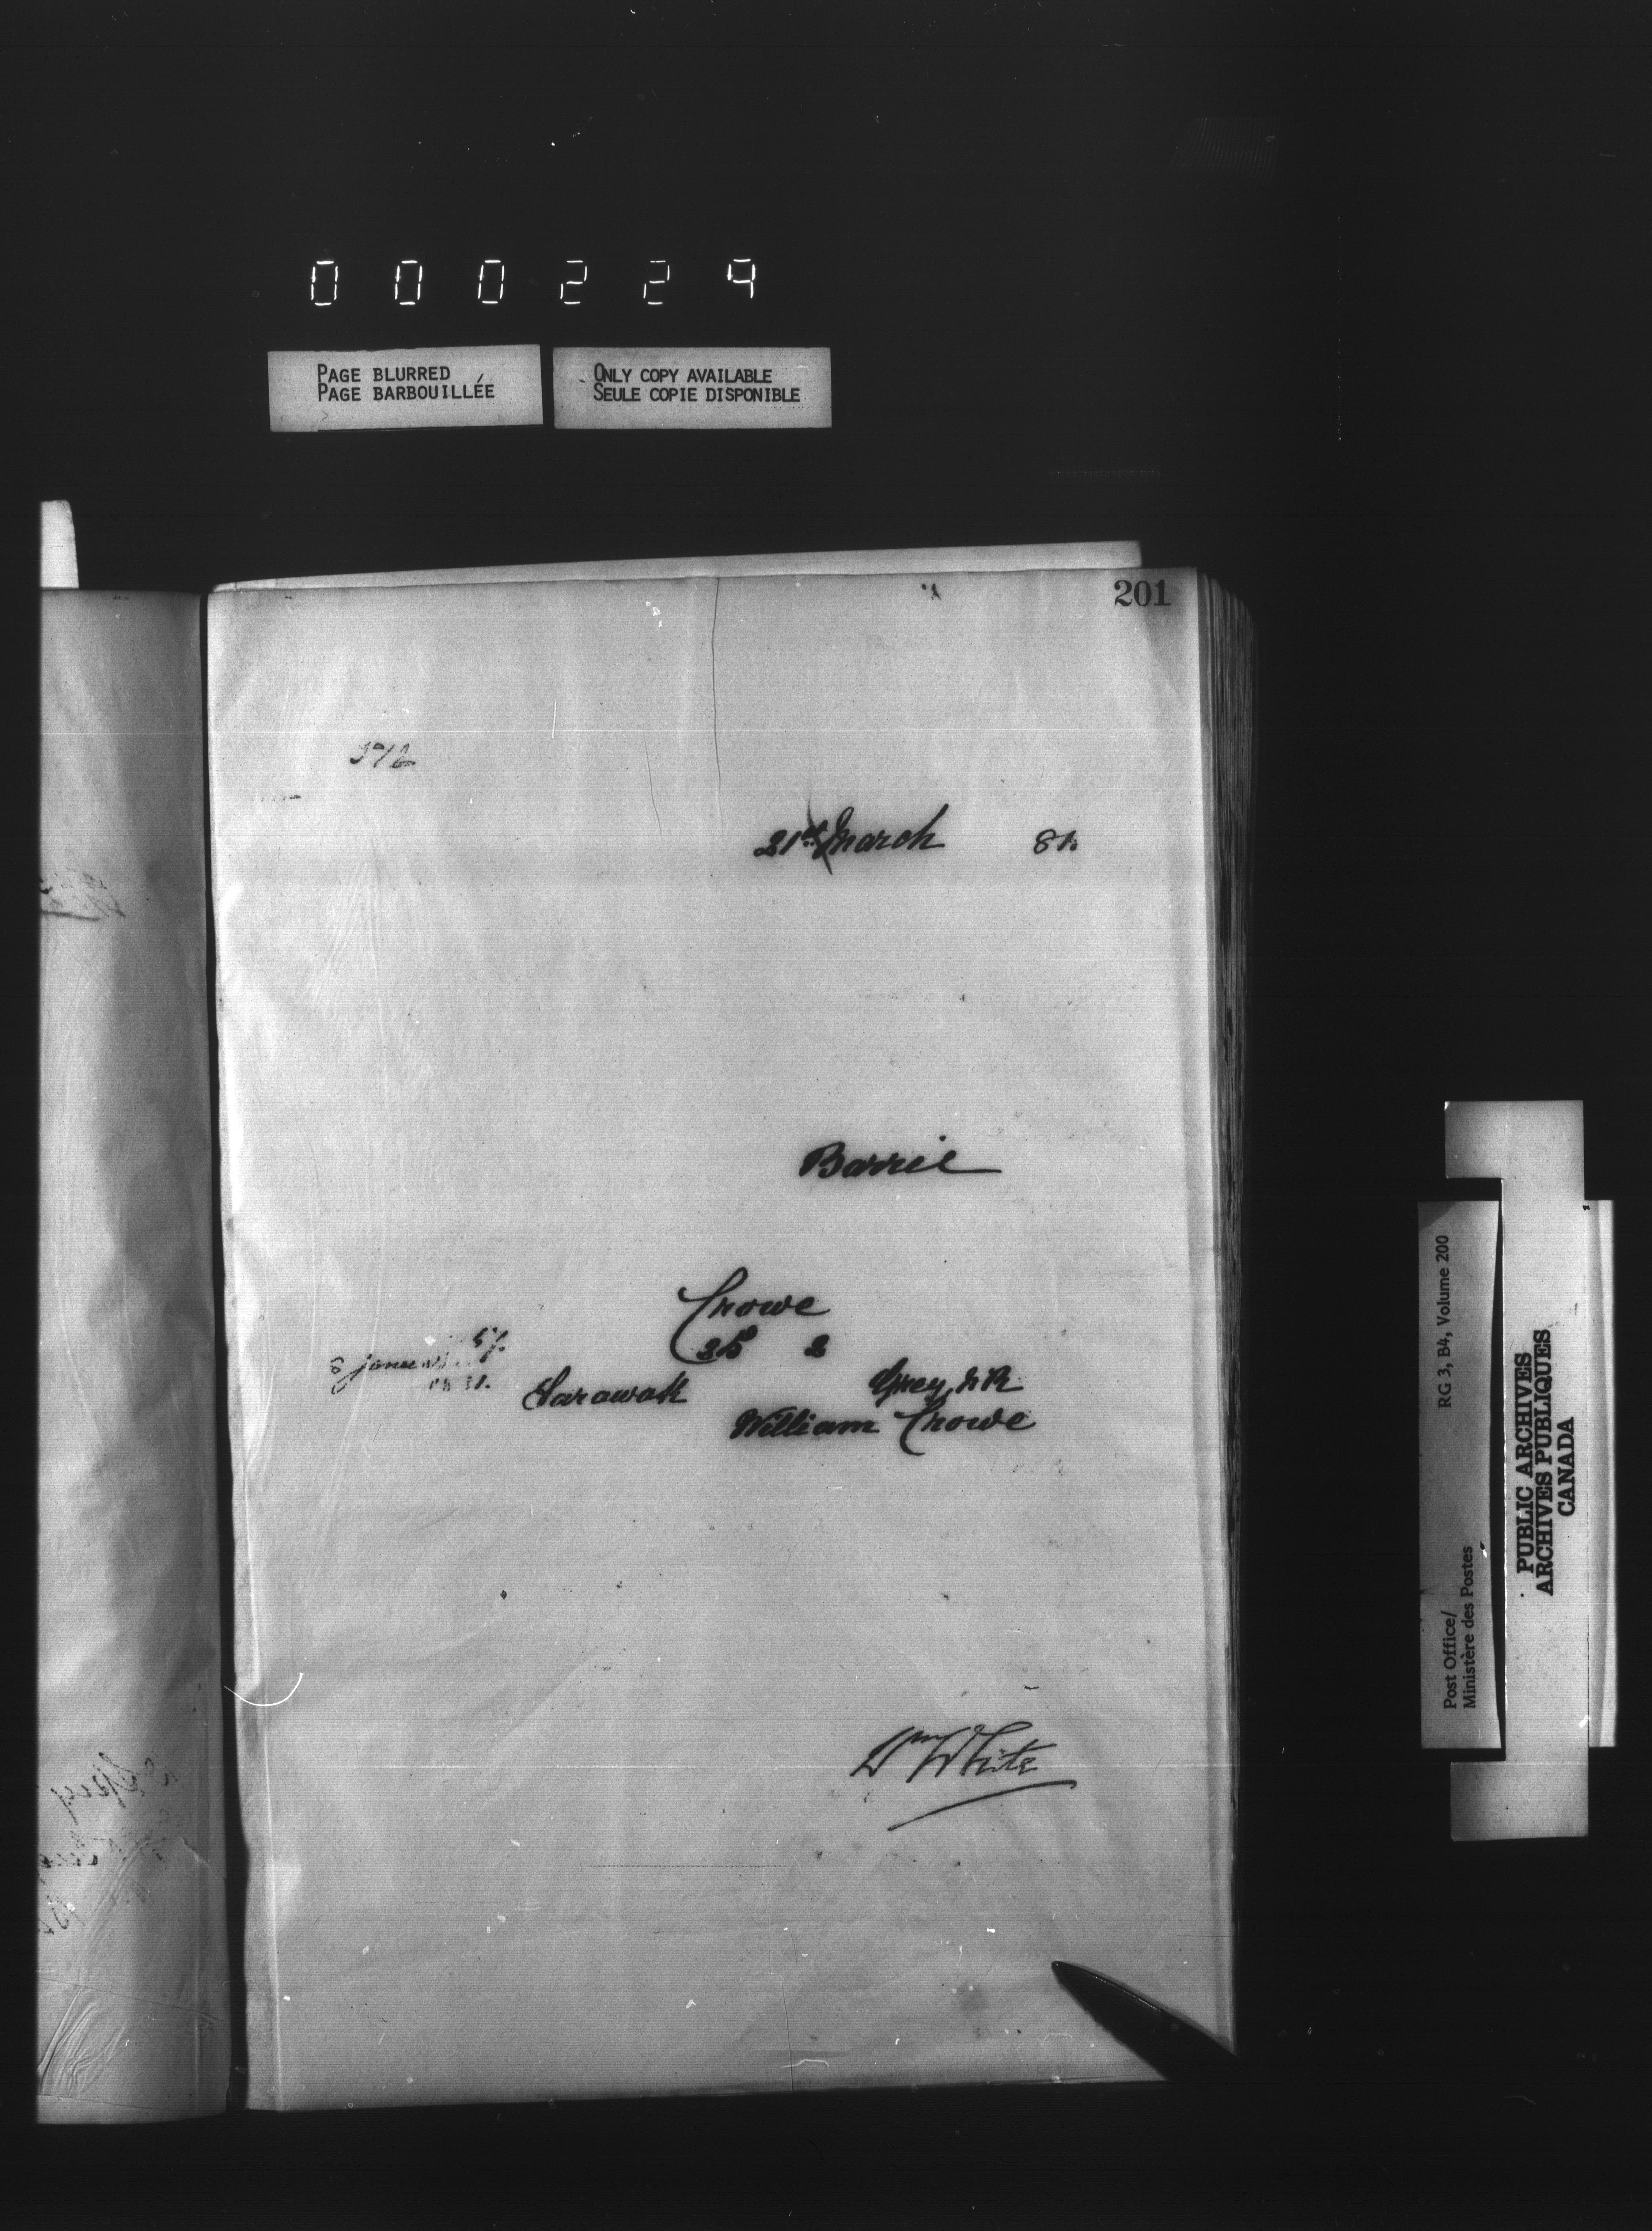 000229
PAGE BLURRED
PAGE BARBOUILLÉE
ONLY COPY AVAILABLE
SEULE COPIE DISPONIBLE
201
21st March 81.
Barrie
Crowe
25 2
Sarawak Grey, N R
William Crowe
Wm White
RG 3, B4, Volume 200
Post Office/
Ministère des Postes
PUBLIC ARCHIVES
ARCHIVES PUBLIQUES
CANADA